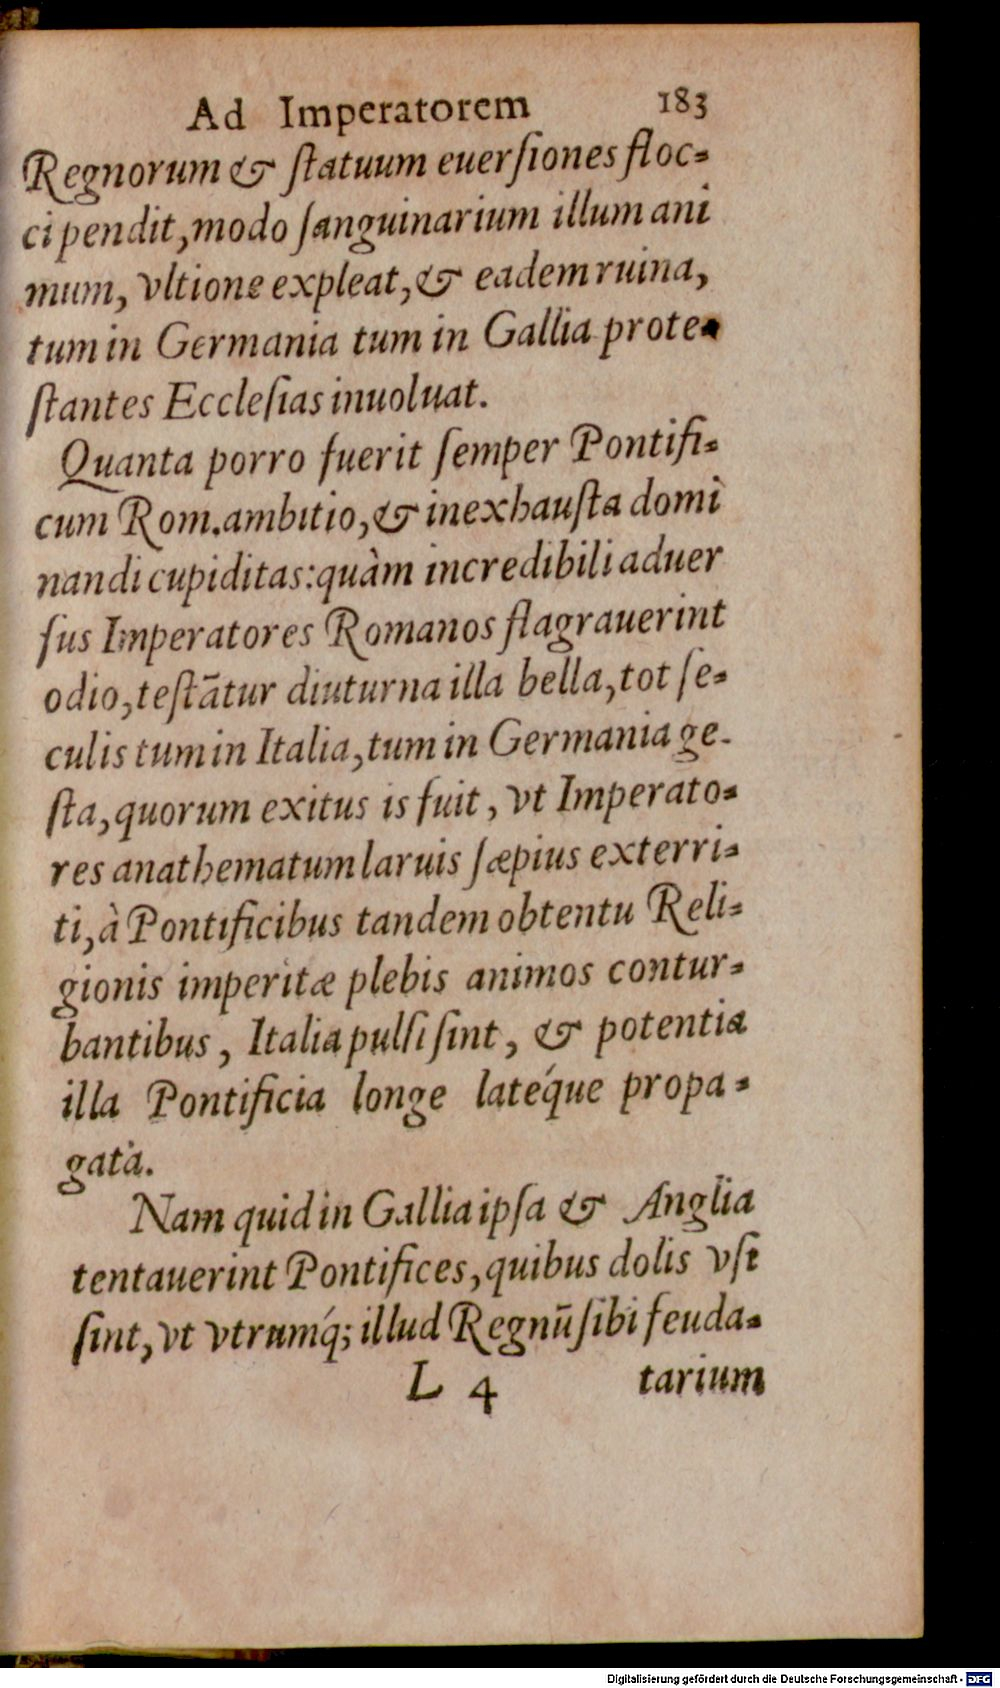 Ad Imperatorem 183
Regnorum & ſtatuum euerſiones floc-
ci pendit, modo ſanguinarium illum ani
mum, vltione expleat, & eadem ruina,
tum in Germania tum in Gallia prote-
ſtantes Eccleſias inuoluat.
Quanta porro fuerit ſemper Pontifi-
cum Rom. ambitio, & inexhauſta domi
nandi cupiditas: quàm incredibili aduer
ſus Imperatores Romanos flagrauerint
odio, teſtātur diuturna illa bella, tot ſe-
culis tum in Italia, tum in Germania ge-
ſta, quorum exitus is fuit, vt Imperato-
res anathematum laruis ſæpius exterri-
ti, à Pontificibus tandem obtentu Reli-
gionis imperitæ plebis animos contur-
bantibus, Italia pulſi ſint, & potentia
illa Pontificia longe latéque propa-
gata.
Nam quid in Gallia ipſa & Anglia
tentauerint Pontifices, quibus dolis vſi
ſint, vt vtrumq́; illud Regnū ſibi feuda-
L 4 tarium
Digitalisierung gefördert durch die Deutsche Forschungsgemeinschaft - DFG